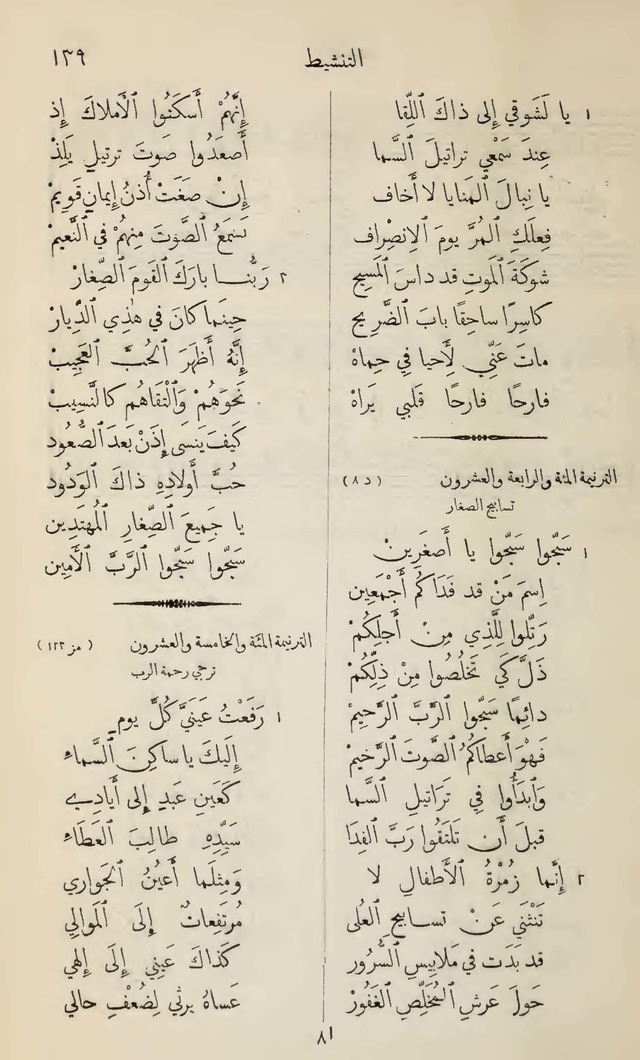 التنشيط
١٣٩
١ يا لَشَوقي إِلى ذاكَ اللِّقا
عِندَ سَمْعي تراتيلَ السَّما
يا نِبالَ المَنايا لا أَخاف
فِعلَكِ المُرَّ يومَ الاِنصِراف
شوكَةَ المَوتِ قد داسَ المَسِيح
كاسِرًا ساحِقًا بابَ الضَّرِيح
ماتَ عَنِّي لِأَحيا فِي حِماهْ
فارحًا فارحًا قلبي يَراهْ
الترنيمة المئة والرابعة والعشرون (د ٨)
تسابيح الصغار
١ سَبِّحوا سَبِّحوا يا أَصغَرِينْ
اِسمَ مَنْ قد فَدَاكُم أَجْمَعِين
رَتِّلوا لِلَّذِي مِنْ أَجلِكُمْ
ذَلَّ كَي تَخلُصُوا مِنْ ذِلِّكُمْ
دائِمًا سَبِّحوا الرَّبَّ الرَّحِيمْ
فَهْوَ أَعطاكُمُ الصَّوتَ الرَّخيمْ
وَابدَأُوا فِي تَرَاتِيلِ السَّما
قبلَ أَن تَلتَقُوا رَبَّ الفِدَا
٢ إِنَّما زُمْرَةُ الأَطفالِ لا
تَنْثَنِي عَنْ تسابيحِ العُلى
قد بدَت في مَلابِيسِ السُّرُور
حَولَ عَرشِ المُخَلِّصِ الغَفُورْ
إِنَّهُمْ أَسكَتُوا الأَملاكَ إِذ
أَصعَدُوا صَوتَ ترتيلٍ يَلِذْ
إِنْ صَغَتْ أُذنُ إِيمانٍ قَوِيمْ
تَسمَعُ الصَّوتَ مِنهُمْ فِي النَّعيمْ
٢ رَبُّنا بارَكَ القَومَ الصِّغارْ
حِينَما كانَ في هٰذِي الدِّيارْ
إِنَّهُ أَظهَرَ الحُبَّ العَجِيبْ
نَحوَهُمْ وَالْتَقاهُم كالنَّسِيبْ
كَيفَ يَنسَى إِذَنْ بَعدَ الصُّعُود
حُبَّ أَولادِهِ ذاكَ الوَدُود
يا جَمِيعَ الصِّغارِ المُهتَدِين
سَبِّحوا سَبِّحوا الرَّبَّ الأَمِين
الترنيمة المئة والخامسة والعشرون (مز ١٢٣)
نرجي رحمة الرب
١ رَفَعْتُ عَينَيَّ كُلَّ يومٍ
إِلَيكَ يا ساكِنَ السَّماءِ
كَعَينِ عَبدٍ إِلى أَيادِي
سَيِّدِهِ طالِبَ العَطَاءِ
وَمِثلَما أَعيُنُ الجَوارِي
مُرتَفِعاتٌ إِلَى المَوالِي
كَذاكَ عَيني إِلَى إِلهِي
عَساهُ يرثي لِضُعْفِ حالي
٨١